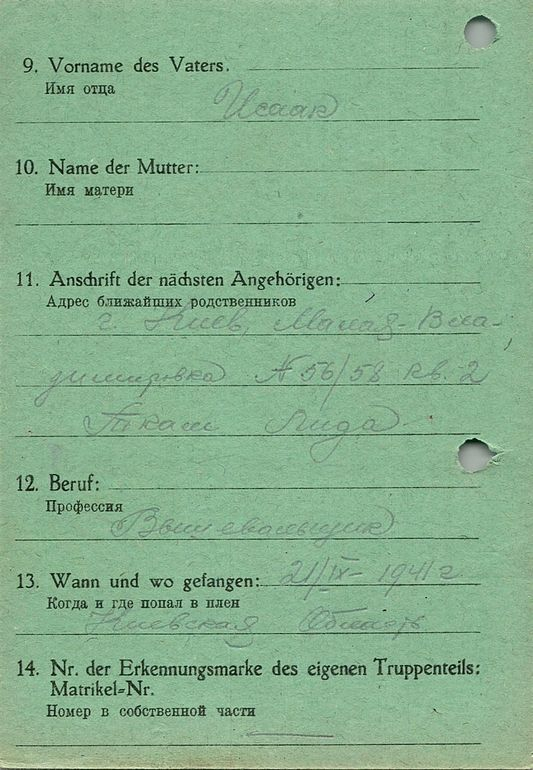 9. Vorname des Vaters.
Имя отца
Исаак
10. Name der Mutter:
Имя матери
11. Anschrift der nächsten Angehörigen:
Адрес ближайших родственников
г. Киев, Малая-Вла-
димировка № 56/58 кв. 2
Ткач Лида
12. Beruf:
Профессия
Вышевальщик
13. Wann und wo gefangen: 21/IX-1941 г
Когда и где попал в плен
Киевская Область
14. Nr. der Erkennungsmarke des eigenen Truppenteils:
Matrikel=Nr.
Номер в собственной части